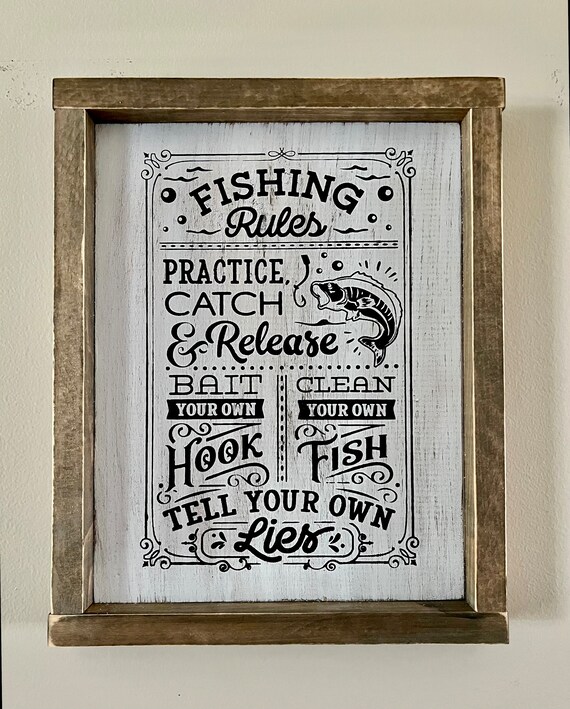 FISHING
Rules
PRACTICE,
CATCH
& Release
BAIT
YOUR OWN
HOOK
CLEAN
YOUR OWN
FISH
TELL YOUR OWN
Lies